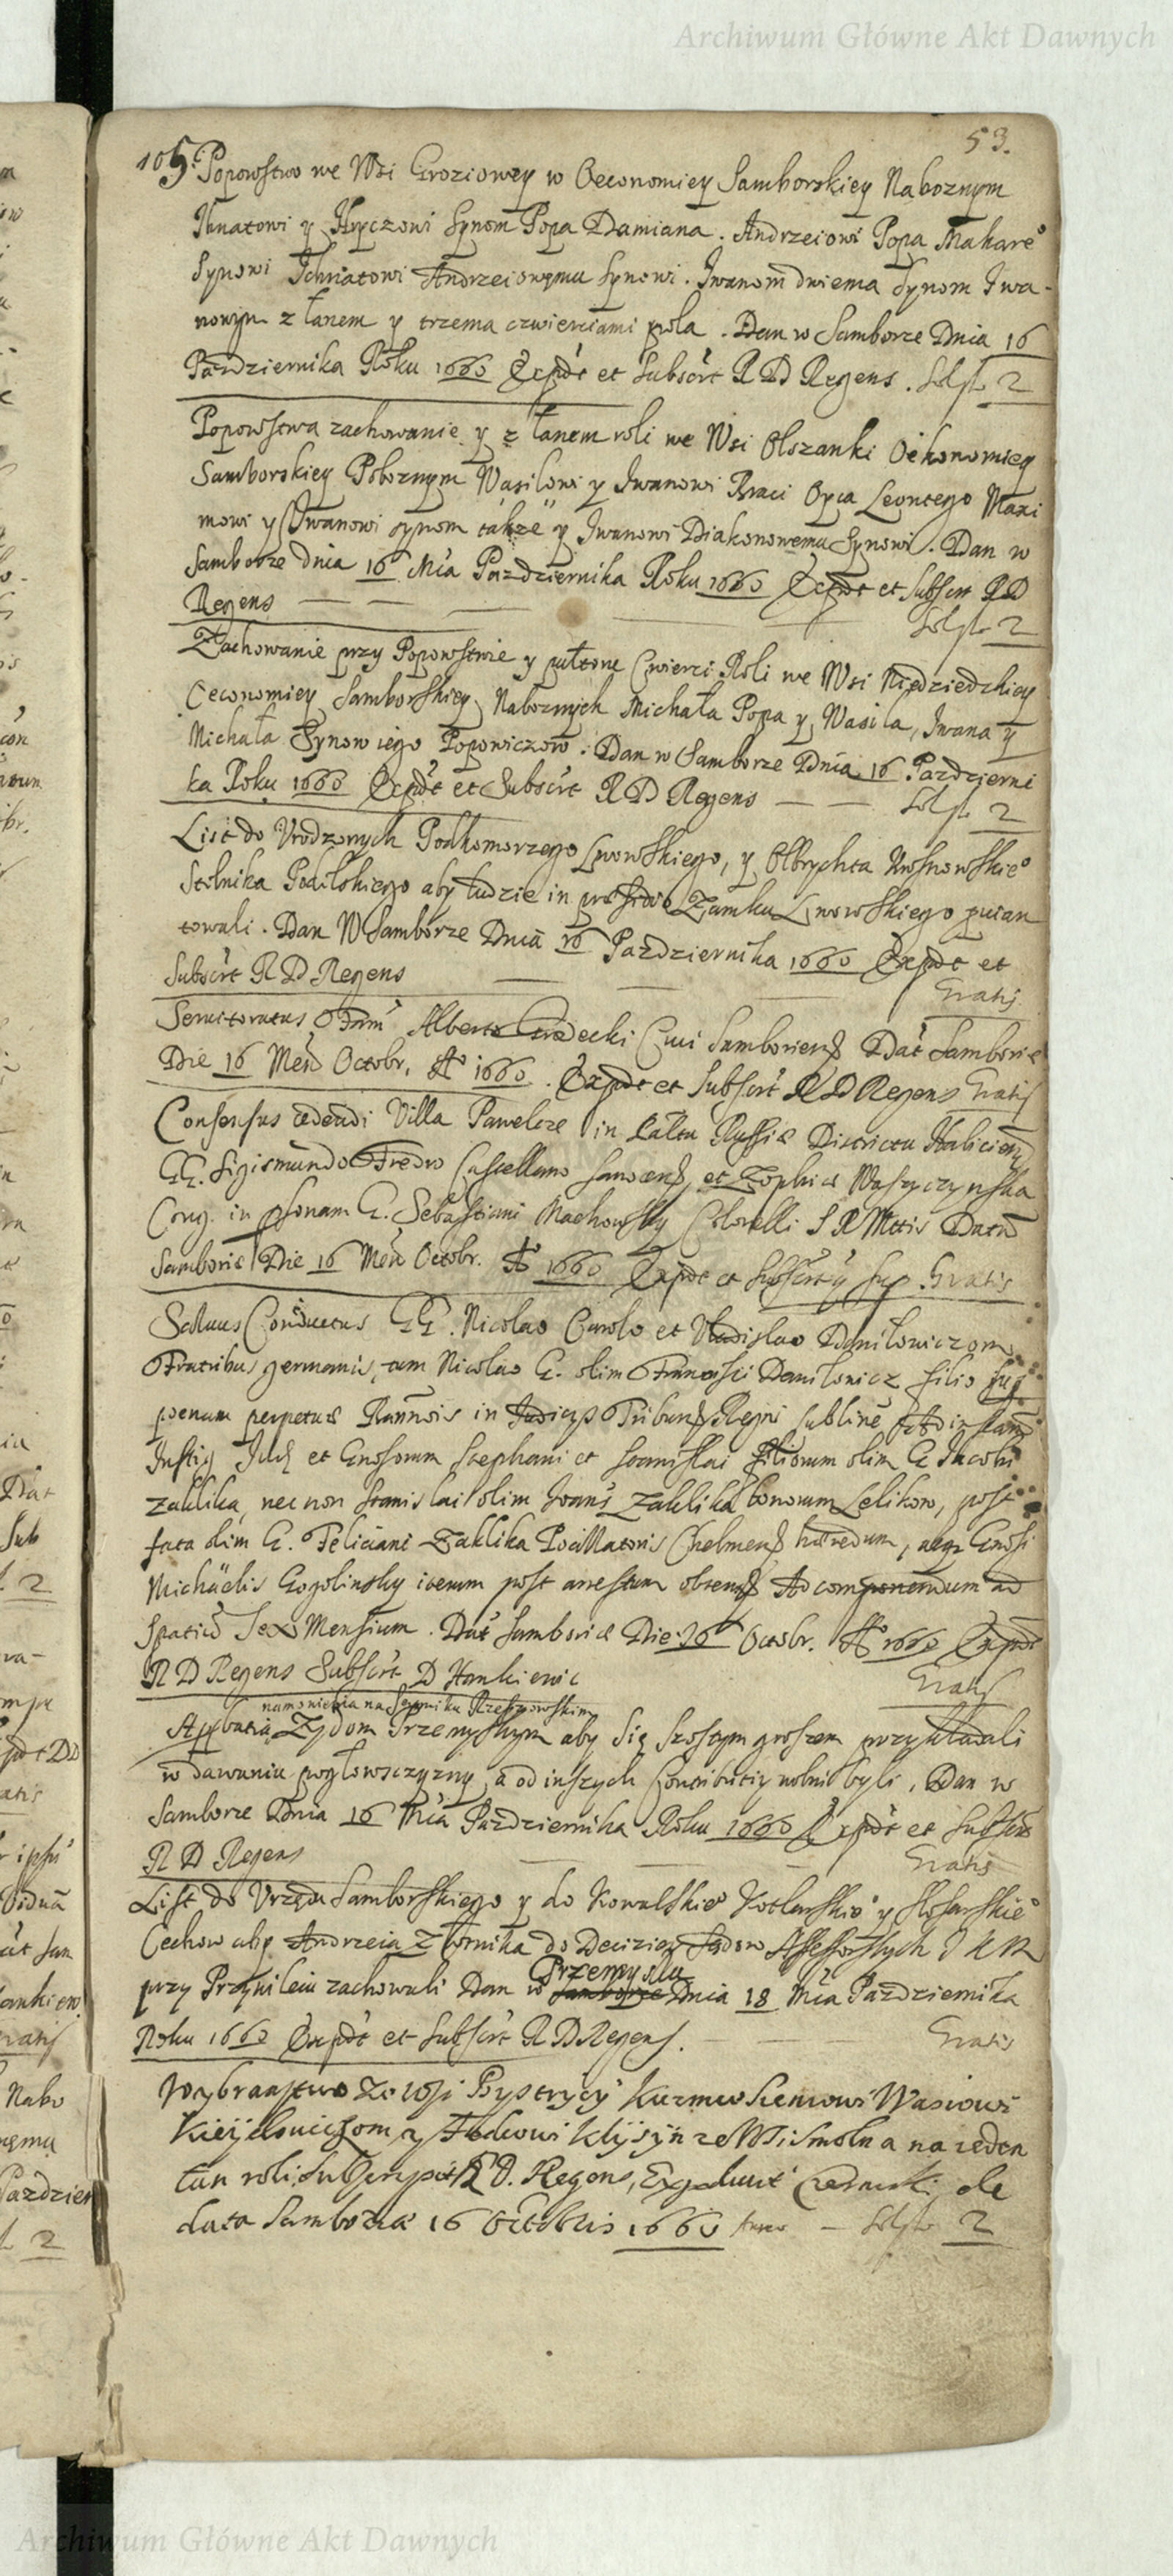 Archiwum Główne Akt Dawnych
53.
105. Popowstwo we Wsi Groziowey w Oeconomiey Samborskiey Naboznym
Ihnatowi y Hryczowi Synom Popa Damiana. Andrzeiowi Popa Makare°
Synowi Ichnatowi Andrzeiowemu Synowi. Iwanom dwiema Synom Iwa-
nowym z łanem y trzema czwierciami pola. Dan w Samborze Dnia 16
Pazdziernika Roku 1660 Exped̃t et Subscr̃t R D Regens. Solṡt 2
Popowstwa zachowanie y z łanem roli we Wsi Olszanki Oekonomiey
Samborskiey Poboznym Wasilowi y Iwanowi Braci Oyca Leontego Maxi
mowi y Iwanowi synom także y Iwanowi Diakonowemu Synowi. Dan w
Samborze dnia 16 Mća Pazdziernika Roku 1660 Exped̃t et Subscrt R D
Regens — — — Solṡt 2
Zachowanie przy Popowstwie y pułtore Cwierci Roli we Wsi
Oeconomiey Samborskiey Naboznych Michała Popa y Wasila, Iwana y
Michała Synow iego Popowiczow. Dan w Samborze Dnia 16 Pazdzierni
ka Roku 1660 Exped̃t et Subscr̃t R D Regens — — Solṡt 2
List do Urodzonych Podkomorzego Lwowskiego, y Olbrychta Krosnowskie°
Stolnika Podolskiego aby ludzie in Zamku Lwowskiego
towali. Dan W Samborze Dnia 16 Pazdziernika 1660 Exped̃t et
Subscr̃t R D Regens — — — Gratis
Servitoratus Fam̃ Alberto Grodecki Civi Samboriens̃ Dat̃ Samboriæ
Die 16 Mens̃ Octobr. A° 1660. Exped̃t et Subscr̃t R D Regens Gratis
Consensus cedendi Villa Pawelcze in Pałtu Russiæ Districtu Halicien̄
GG. Sigismundo Fredro Castellano Sanocens̃, et Zophiæ Waszyczynska
Coniug. in p̃sonam G. Sebastiani Machowsky Colonelli S R Mttis Datũ
Samboriæ Die 16 Mens̃ Octobr. A° 1660 Exped̃t et Subscr̃t ũ sup. Gratis
Salvus Conductus GG. Nicolao Carolo et Vladislao Daniłowiczom
Fratribus germanis, tam Nicolao G. olim Francisci Daniłowicz filio sup
poenam perpetuæ Bannõis in Iudicijs Tribunl. Regni Lublinẽ
Instig Iudz et Gnosorum Stephani et Stanislai filiorum olim G Iacobi
Zaklika, nec non Stanislai olim Ioanis Zaklika bonorum Lelikow, post
fata olim G. Feliciani Zaklika Pocillatoris Chelmens̃ hæredum, atqz Gnosi
Michaelis Gogolinsky iterum post arrestum obtens̃ Ad componendum ad
spatiũ Sex Mensium. Dat̃ Samboriæ Die 16 Octobr. A° 1660 Exped̃t
R D Regens Subscr̃t D Hankiewic Gratis
namowienia na Seymiku Rzeszowskim
Apbatia Zydom Przemyskym aby się szostym groszem przykładali
w dawaniu pogłowszczyzny, a od inszych Contributiy wolni byli. Dan w
Samborze Dnia 16 Mća Pazdziernika Roku 1660 Exped̃t et Subscr̃t
R D Regens — — — Gratis
List do Urzędu Samborskiego y do Kowalskie° Kotlarskie° y Slosarskie°
Cechow aby Andrzeia Złotnika do Deciziey Sądow Assessorskych J K M
przy Przywileiu zachowali Dan w Samborze Przemyslu Dnia 18 Mća Pazdziernika
Roku 1660 Exped̃t et Subscr̃t R D Regens. — — Gratis
Wybraństwo ze Wsi Bystrycy Kuzmie Sieniowi Wasiowi
y Fedkowi ze Wsi Smolna na ieden
łan roli. Subscripsit R D. Regens, Expedivit Czernicki de
data Samboriæ 16 Octobris 1660 — Solṡt 2
Archiwum Główne Akt Dawnych